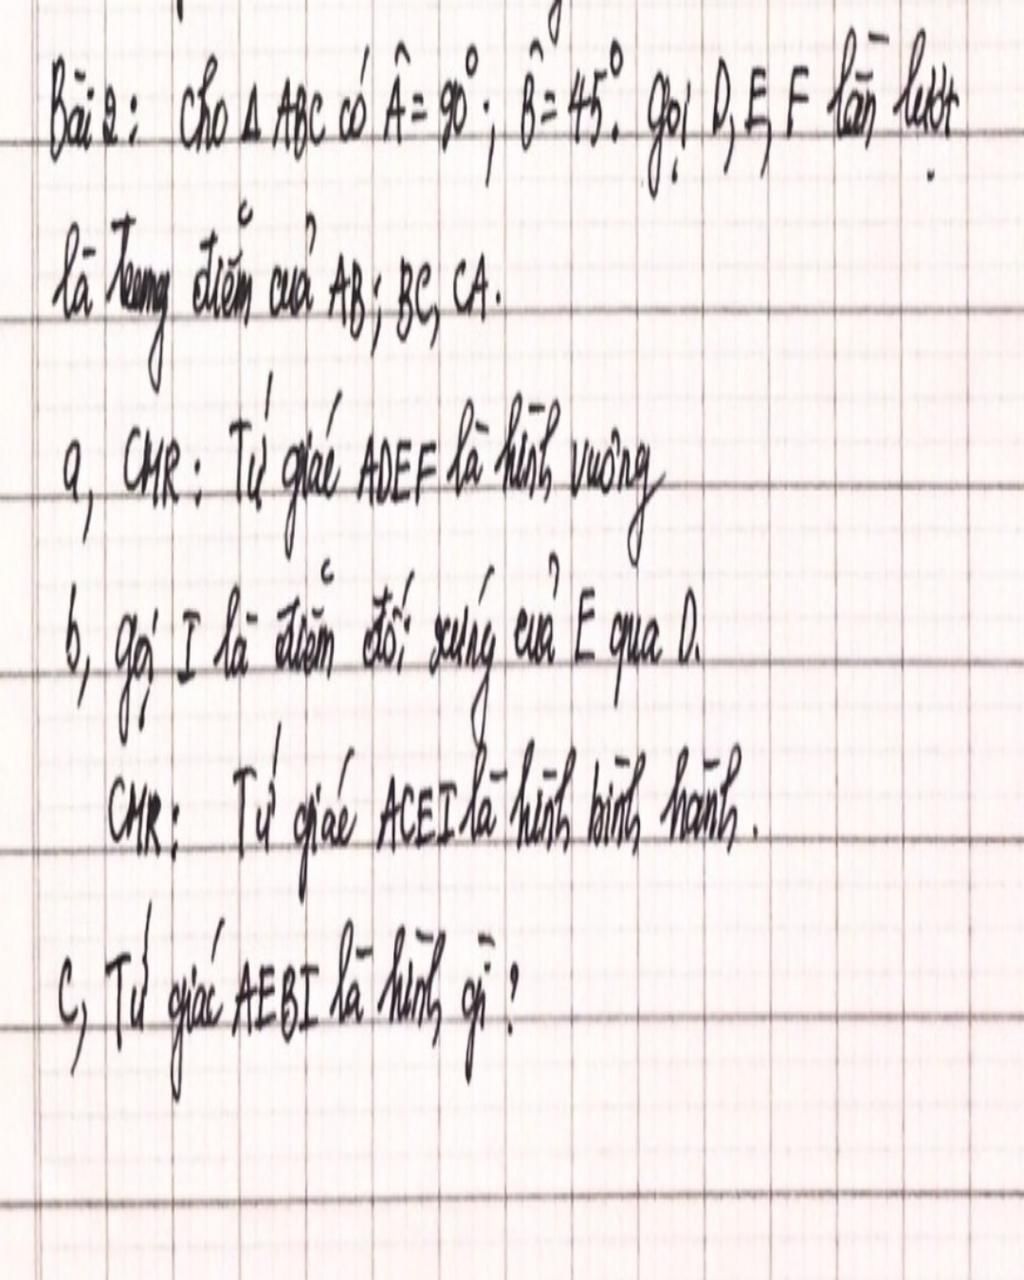 Bài 2: Cho Δ ABC có Â = 90°; B̂ = 45°. Gọi D, E, F lần lượt
là trung điểm của AB; BC, CA.
a, CMR: Tứ giác ADEF là hình vuông
b, Gọi I là điểm đối xứng của E qua D.
CMR: Tứ giác ACEI là hình bình hành.
C, Tứ giác AEBI là hình gì?